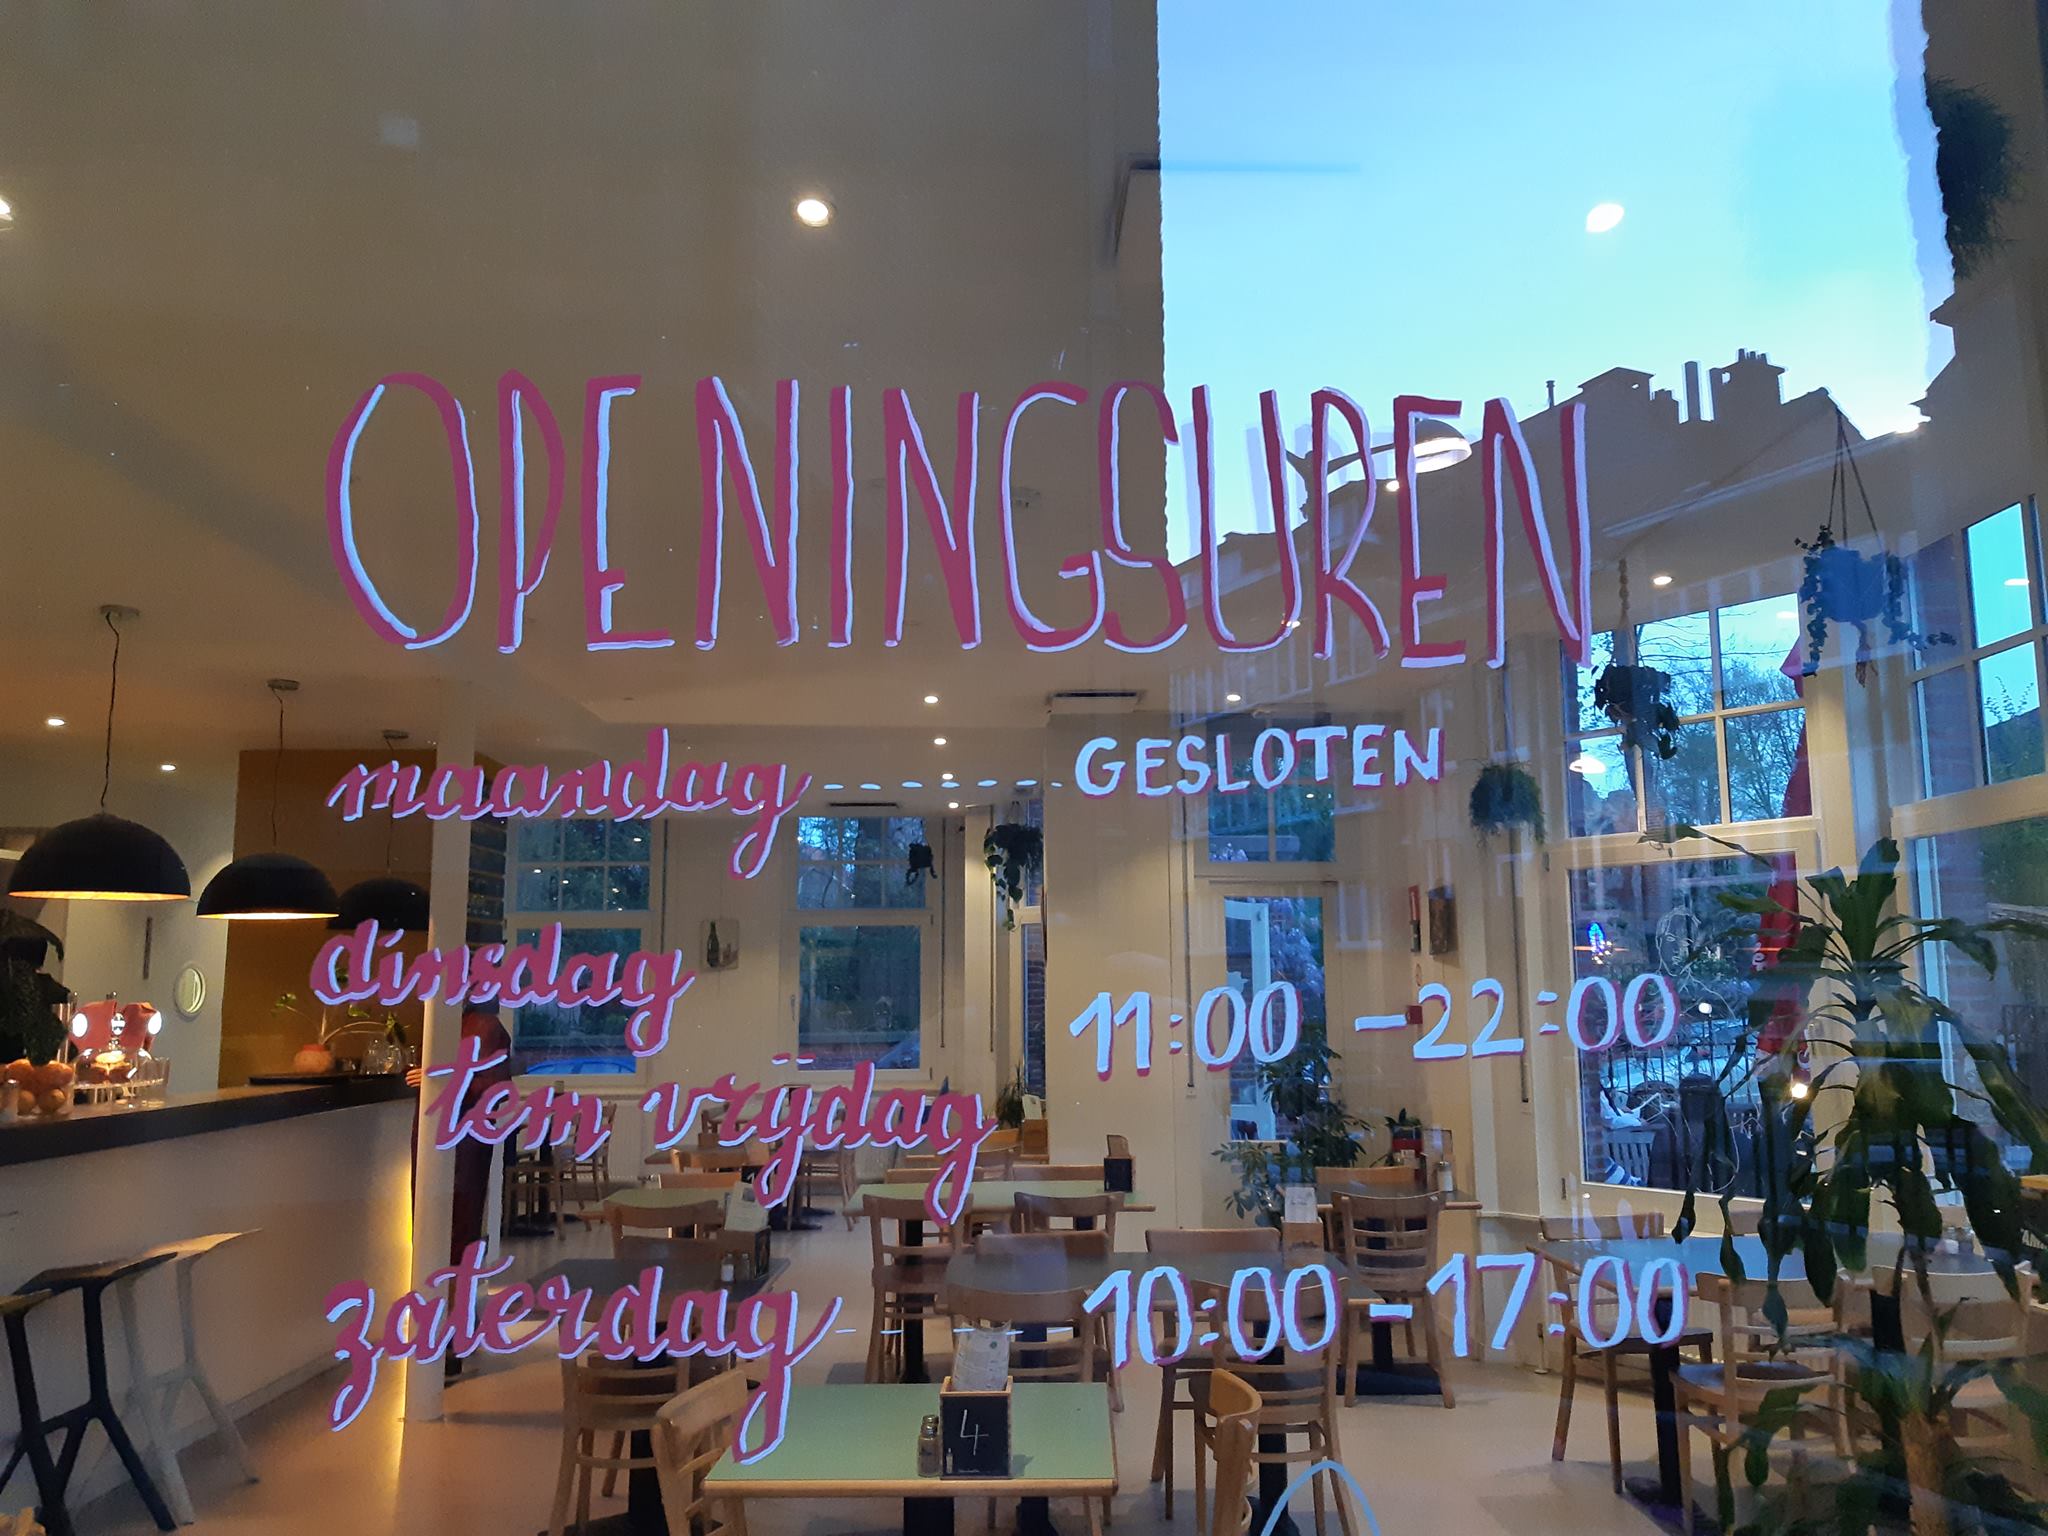 OPENINGSUREN
maandag GESLOTEN
dinsdag
11:00 - 22:00
tem vrijdag
zaterdag 10:00 - 17:00
4